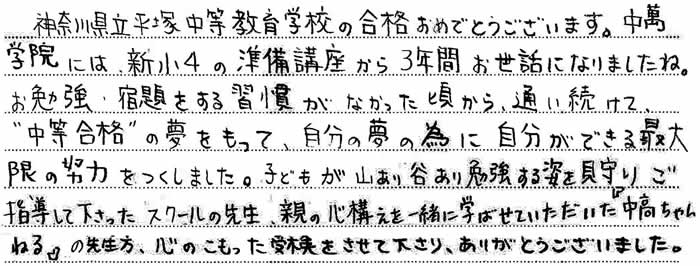 神奈川県立平塚中等教育学校の合格おめでとうございます。中萬
学院には、新小4の準備講座から3年間お世話になりましたね。
お勉強・宿題をする習慣がなかった頃から、通い続けて、
"中等合格"の夢をもって、自分の夢の為に自分ができる最大
限の努力をつくしました。子どもが山あり谷あり勉強する姿を見守りご
指導して下さったスクールの先生、親の心構えを一緒に学ばせていただいた"中高ちゃん
ねる"の先生方、心のこもった受検をさせて下さり、ありがとうございました。